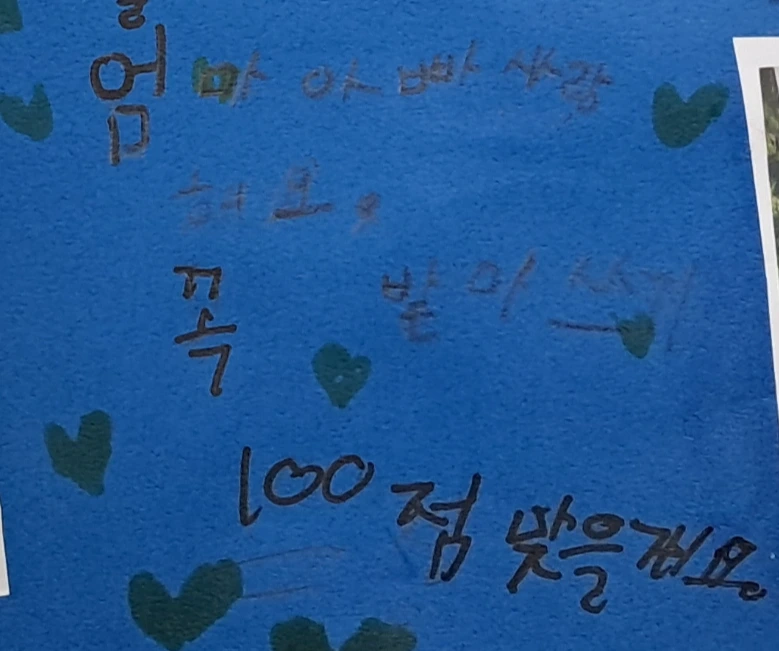 엄마 아빠 사랑
해요.
꼭 받아
100점 맞을게요.